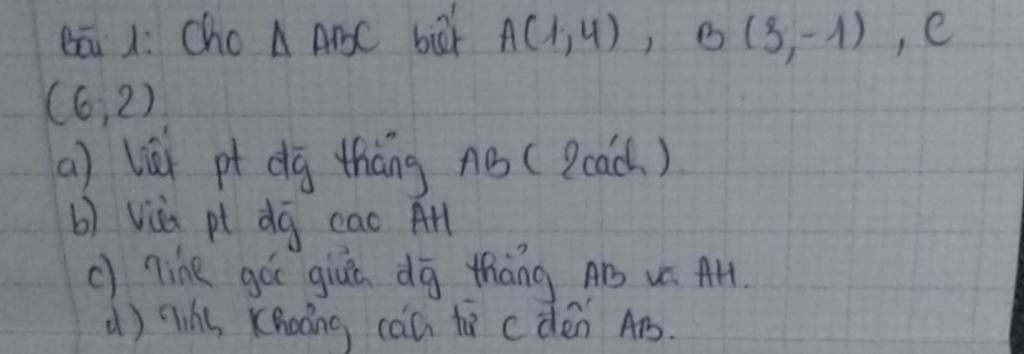 Bài 1: Cho Δ ABC biết A(1,4), B(3,-1), C
(6,2)
a) Viết pt đg thẳng AB (2 cách)
b) Viết pt đg cao AH
c) Tính góc giữa đg thẳng AB và AH.
d) Tính khoảng cách từ C đến AB.